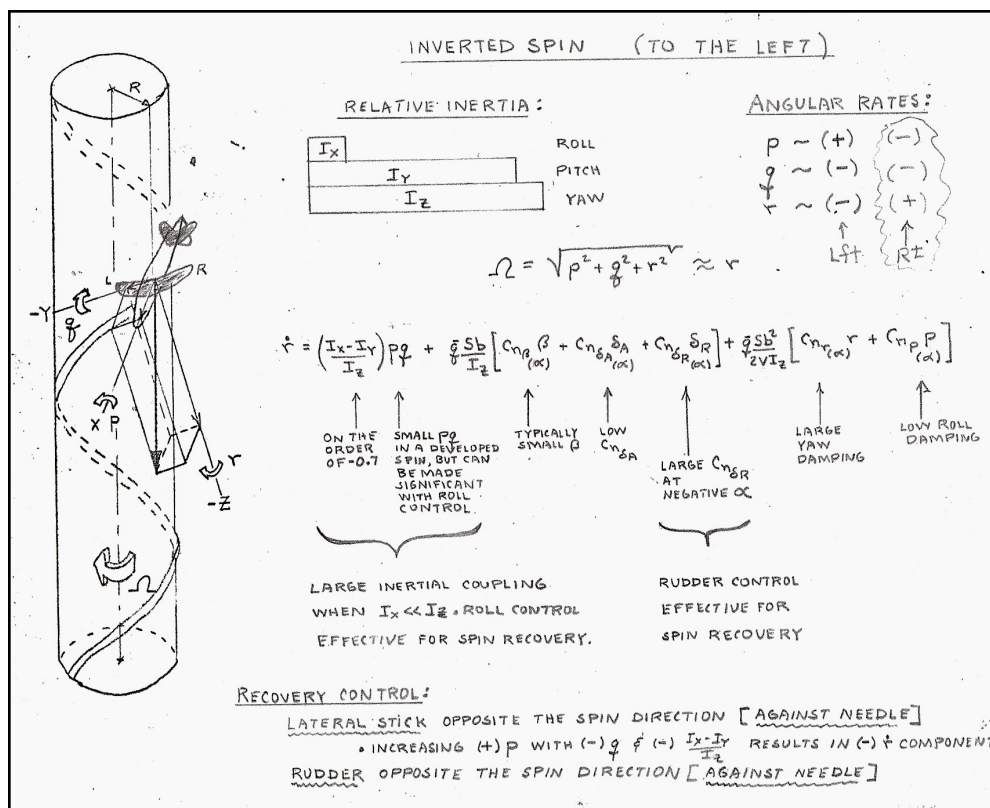 INVERTED SPIN (TO THE LEFT)
R
RELATIVE INERTIA:
I_X ROLL
I_Y PITCH
I_Z YAW
ANGULAR RATES:
p ~ (+) (-)
q ~ (-) (-)
r ~ (-) (+)
Lft Rt
Ω = √(p² + q² + r²) ≈ r
L R
-Y
q
X P
r
-Z
Ω
ṙ = (I_X - I_Y / I_Z) pq + q̄Sb/I_Z [C_nβ(α) β + C_nδA(α) δ_A + C_nδR(α) δ_R] + q̄Sb²/2VI_Z [C_nr(α) r + C_np(α) p]
ON THE
ORDER
OF -0.7
SMALL pq
IN A DEVELOPED
SPIN, BUT CAN
BE MADE
SIGNIFICANT
WITH ROLL
CONTROL.
TYPICALLY
SMALL β
LOW
C_nδA
LARGE C_nδR
AT
NEGATIVE α
LARGE
YAW
DAMPING
LOW ROLL
DAMPING
LARGE INERTIAL COUPLING
WHEN I_X << I_Z. ROLL CONTROL
EFFECTIVE FOR SPIN RECOVERY.
RUDDER CONTROL
EFFECTIVE FOR
SPIN RECOVERY
RECOVERY CONTROL:
LATERAL STICK OPPOSITE THE SPIN DIRECTION [AGAINST NEEDLE]
• INCREASING (+) p WITH (-) q & (-) I_X - I_Y / I_Z RESULTS IN (-) ṙ COMPONENT
RUDDER OPPOSITE THE SPIN DIRECTION [AGAINST NEEDLE]